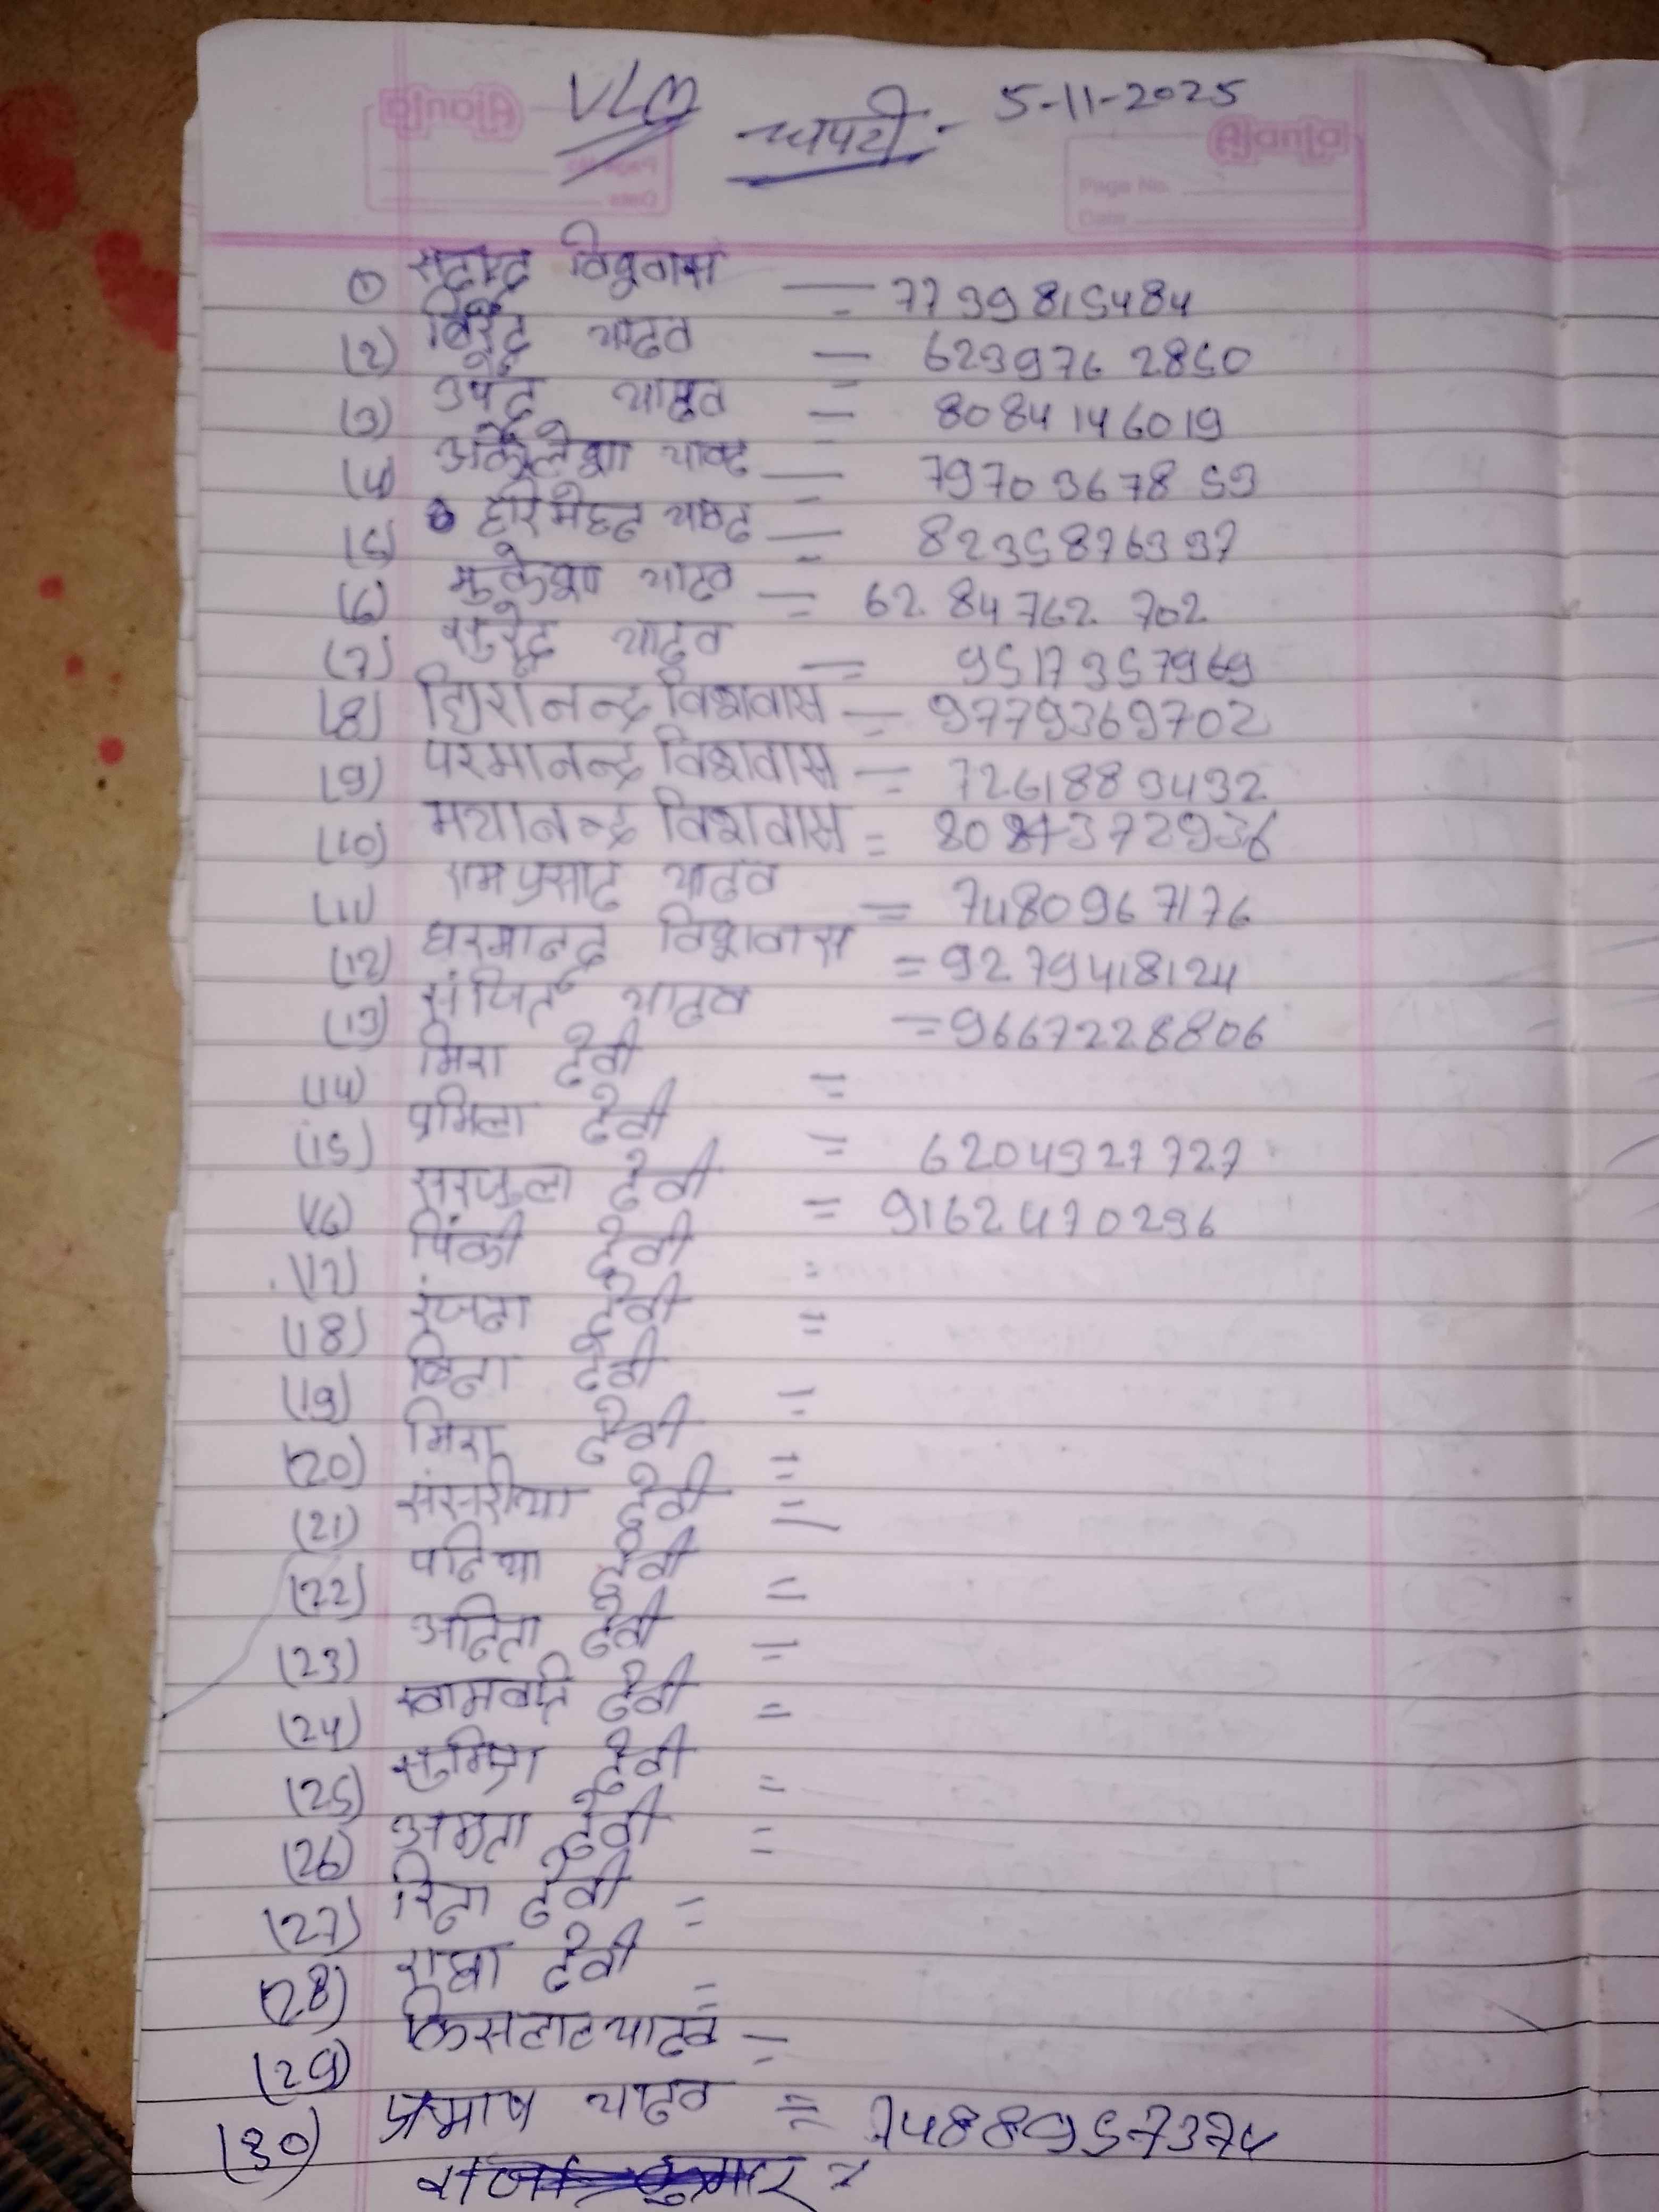 VLM चपटी :- 5-11-2025
Ajanta
Page No.
Date
① विश्वास = 7739815484
(2) बिरेंद्र यादव = 6239762850
(3) उपेंद्र यादव = 8084146019
(4) यादव = 7970367853
(5) यादव = 8235876397
(6) मुकेश यादव = 6284762702
(7) सुरेंद्र यादव = 9517357969
(8) हिरानन्द्र विश्वास = 9779369702
(9) परमानन्द्र विश्वास = 7261889432
(10) मयानन्द्र विश्वास =
(11) रामप्रसाद यादव = 7480967176
(12) धरमानन्द विश्वास = 9279418124
(13) संजित यादव = 9667228806
(14) मिरा देवी =
(15) प्रमिला देवी = 6204927727
(16) देवी = 9162470296
(17) पिंकी देवी =
(18) रंजना देवी =
(19) बिना देवी =
(20) मिरा देवी =
(21) देवी =
(22) पनिया देवी =
(23) अनिता देवी =
(24) देवी =
(25) देवी =
(26) देवी =
(27) रिना देवी =
(28) राधा देवी =
(29) यादव =
(30) यादव = 7488957374